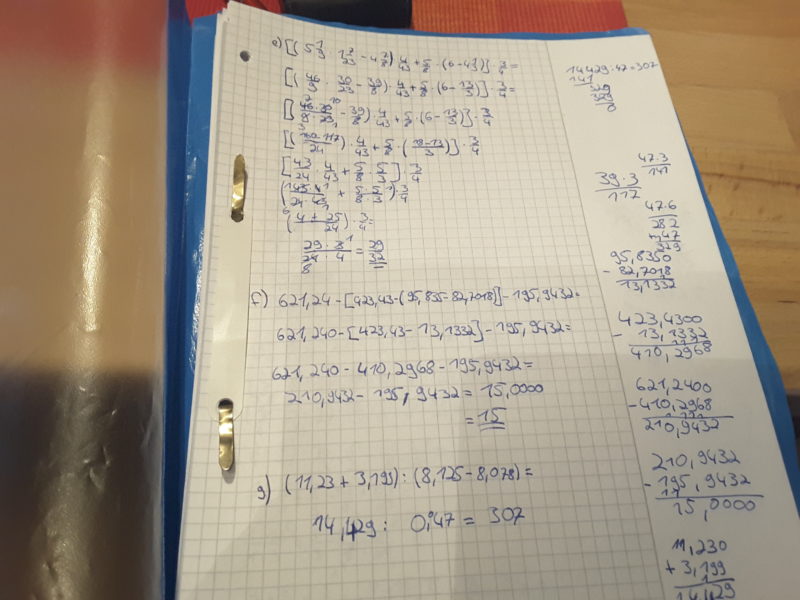 e) [(5 1/3 · 1 7/23 - 4 7/8) · 4/43 + 5/8 · (6 - 4 1/3)] · 3/4 =
[(46/3 · 30/23 - 39/8) · 4/43 + 5/8 · (6 - 13/3)] · 3/4 =
- 39/8) · 4/43 + 5/8 · (6 - 13/3)] · 3/4
[(160-117/24) · 4/43 + 5/8 · (18-13/3)] · 3/4
[43/24 · 4/43 + 5/8 · 5/3] · 3/4
(43·4/24·43 + 5·5/8·3) · 3/4
(4+25/24) · 3/4 =
29·3/24·4 = 29/32
f) 621,24 - [423,43 - (95,835 - 82,7018)] - 195,9432 =
621,240 - [423,43 - 13,1332] - 195,9432 =
621,240 - 410,2968 - 195,9432 =
210,9432 - 195,9432 = 15,0000
= 15
g) (11,23 + 3,199) : (8,125 - 8,078) =
14,429 : 0,047 = 307
14429 : 47 = 307
141
329
329
0
47·3
141
39·3
117
47·6
282
+47
329
95,8350
- 82,7018
13,1332
423,4300
- 13,1332
410,2968
621,2400
- 410,2968
210,9432
210,9432
- 195,9432
15,0000
11,230
+ 3,199
14,429